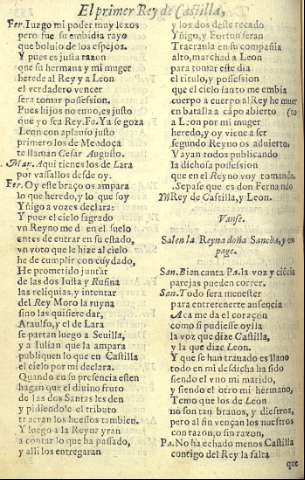 El primer Rey de Castilla,
Fer. Iuzgo mi poder muy lexos
pero fue su embidia rayo
que boluio de los espejos.
Y pues es justa razon
que su hermana y mi muger
herede al Rey y a Leon
el verdadero vencer
sera tomar possesion.
Pues hijos no tuuo, es justo
que yo sea Rey. Fo. Ya se goza
Leon con aplauso justo
primero los de Mendoça
te llaman Cesar Augusto.
Mar. Aqui tienes los de Lara
por vassallos desde oy.
Fer. Oy este braço os ampara
lo que heredo, y lo que soy
Yñigo a vozes declara:
Y pues el cielo sagrado
vn Rey me dà en el suelo
antes de entrar en su estado,
vn voto que le hize al cielo
he de cumplir con cuydado,
He prometido juntar
de las dos Iusta y Rufina
las reliquias, y intentar
del Rey Moro la ruyna
sino las quisiere dar,
Ataulfo, y el de Lara
se partan luego a Seuilla,
y a Iulian que la ampara
publiquen lo que en Castilla
el cielo por mi declara.
Quando en su presencia esten
hagan que el diuino fruto
de las dos Santas les den
y pidiendole el tributo
traeran los huessos tambien.
Y luego a la Reyna yran
a contar lo que ha passado,
y alli los entregaran
y los dos deste recado
Yñigo, y Fortun seran
Traerania en su compañia
alto, marchad a Leon
para tomar este dia
el titulo, y possession
que el cielo santo me embia
cuerpo a cuerpo al Rey he muer
en batalla a cãpo abierto (to
a Leon por mi muger
heredo, y oy viene a ser
segundo Reyno os aduierto.
Vayan todos publicando
la dichosa possession
que en el Reyno voy tomando.
Sepase que es don Fernando
Rey de Castilla, y Leon.
Vanse.
Salen la Reyna doña Sancha, y en
page.
San. Bien canta Pa. la voz y citara
parejas pueden correr.
San. Todo sera menester
para entretenerte ausencia
Aca me da el coraçon
como si pudiesse oylla
la voz que dize Castilla,
y la que dize Leon.
Y que se han trauado es llano
todo en mi desdicha ha sido
siendo el vno mi marido,
y siendo el otro mi hermano,
Temo que los de Leon
no son tan brauos, y diestros,
pero al fin vençan los nuestros
con razon, o sin razon,
Pa. No ha echado menos Castilla
contigo del Rey la falta
que